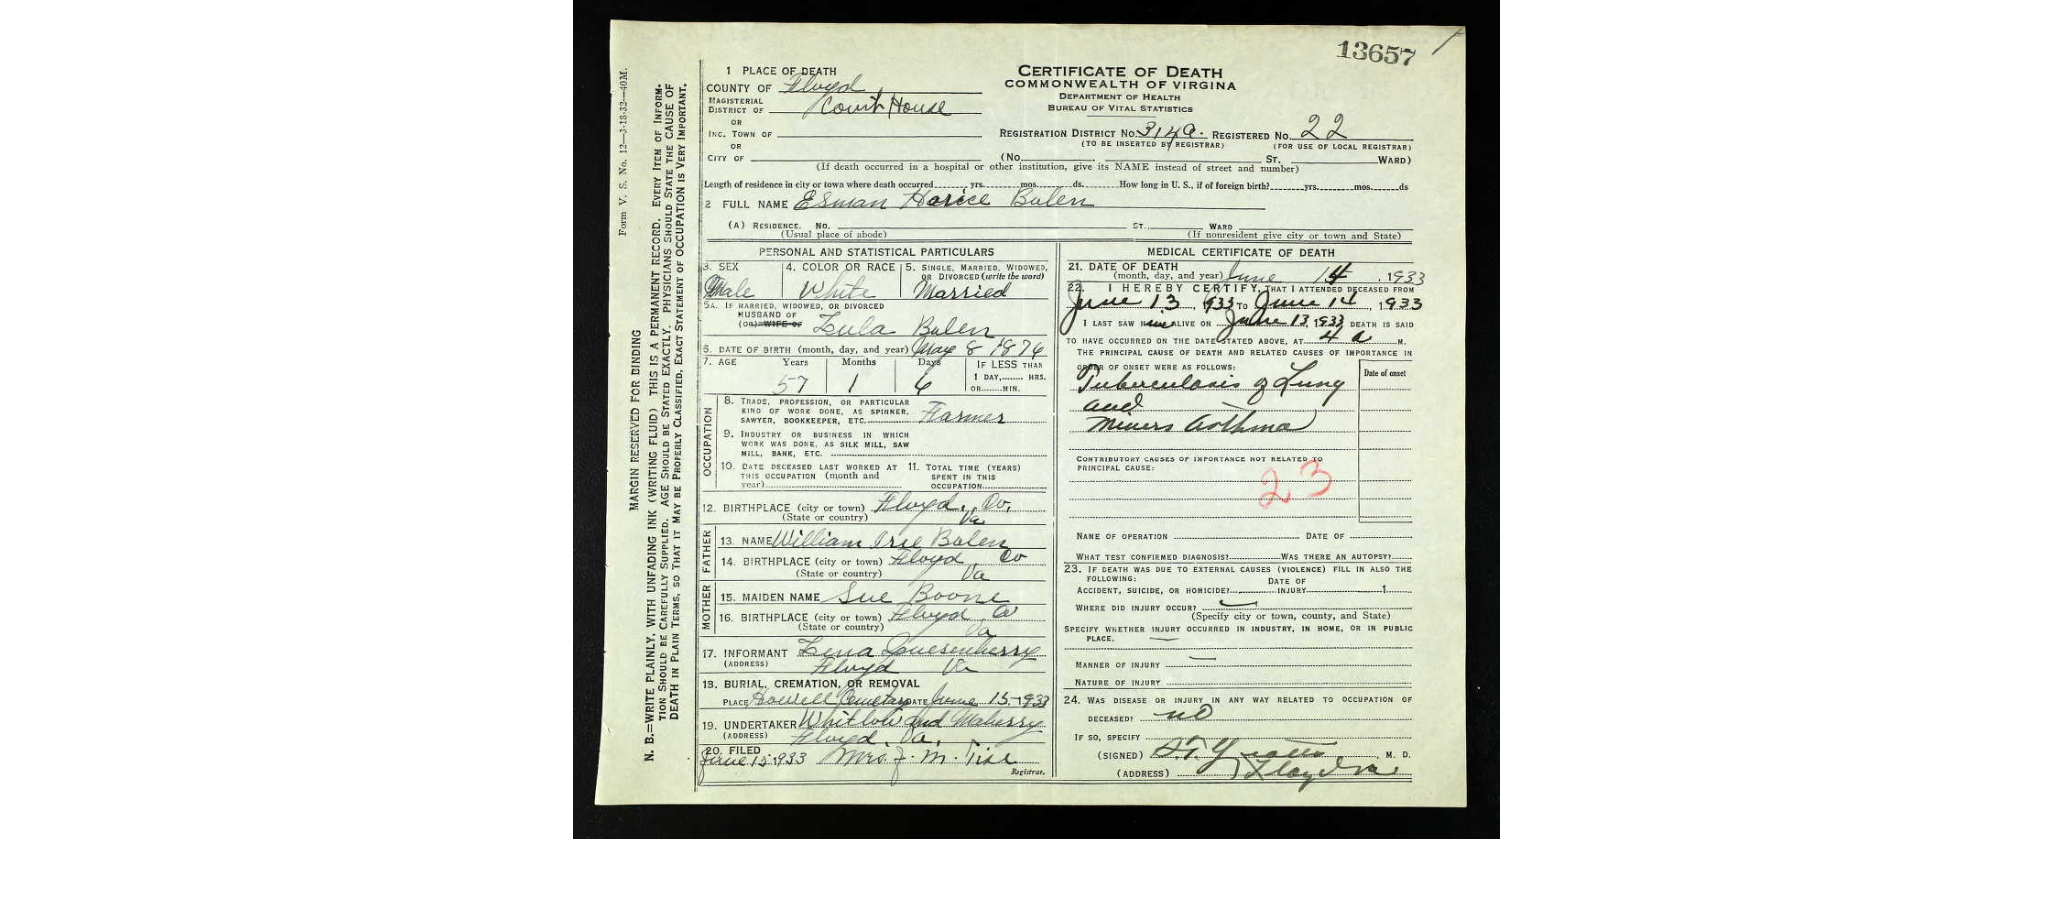 13657
1 PLACE OF DEATH
COUNTY OF Floyd
MAGISTERIAL
DISTRICT OF Court House
OR
INC. TOWN OF
OR
CITY OF
CERTIFICATE OF DEATH
COMMONWEALTH OF VIRGINA
DEPARTMENT OF HEALTH
BUREAU OF VITAL STATISTICS
REGISTRATION DISTRICT No. 314a. REGISTERED No. 22
(TO BE INSERTED BY REGISTRAR) (FOR USE OF LOCAL REGISTRAR)
(No. ST. WARD)
(If death occurred in a hospital or other institution, give its NAME instead of street and number)
Length of residence in city or town where death occurred yrs. mos. ds. How long in U. S., if of foreign birth? yrs. mos. ds
2 FULL NAME Esman Horice Bolen
(A) RESIDENCE. No. ST. WARD
(Usual place of abode) (If nonresident give city or town and State)
PERSONAL AND STATISTICAL PARTICULARS
3. SEX 4. COLOR OR RACE 5. SINGLE, MARRIED, WIDOWED,
OR DIVORCED (write the word)
Male White Married
5A. IF MARRIED, WIDOWED, OR DIVORCED
HUSBAND OF
(OR) WIFE OF Lula Bolen
6. DATE OF BIRTH (month, day, and year) May 8 1876
7. AGE Years Months Days IF LESS THAN
1 DAY, HRS.
OR MIN.
57 1 6
OCCUPATION
8. TRADE, PROFESSION, OR PARTICULAR
KIND OF WORK DONE, AS SPINNER,
SAWYER, BOOKKEEPER, ETC. Farmer
9. INDUSTRY OR BUSINESS IN WHICH
WORK WAS DONE, AS SILK MILL, SAW
MILL, BANK, ETC.
10. DATE DECEASED LAST WORKED AT 11. TOTAL TIME (YEARS)
THIS OCCUPATION (month and SPENT IN THIS
year) OCCUPATION
12. BIRTHPLACE (city or town) Floyd, Co,
(State or country) Va
FATHER
13. NAME William Irie Bolen
14. BIRTHPLACE (city or town) Floyd Co
(State or country) Va
MOTHER
15. MAIDEN NAME Sue Boone
16. BIRTHPLACE (city or town) Floyd Co
(State or country) Va
17. INFORMANT Lena Quesenberry
(ADDRESS) Floyd Va
18. BURIAL, CREMATION, OR REMOVAL
PLACE Howell Cemetary DATE June 15, 1933
19. UNDERTAKER Whitlow and Maberry
(ADDRESS) Floyd, Va,
20. FILED
June 15 1933 Mrs. J. M.
Registrar.
MEDICAL CERTIFICATE OF DEATH
21. DATE OF DEATH
(month, day, and year) June 14, 1933
22. I HEREBY CERTIFY, THAT I ATTENDED DECEASED FROM
June 13, 1933 TO June 14, 1933
I LAST SAW HIM ALIVE ON June 13, 1933, DEATH IS SAID
TO HAVE OCCURRED ON THE DATE STATED ABOVE, AT 4 a M.
THE PRINCIPAL CAUSE OF DEATH AND RELATED CAUSES OF IMPORTANCE IN
ORDER OF ONSET WERE AS FOLLOWS: Date of onset
Tuberculosis of Lung
and
Miners Asthma
CONTRIBUTORY CAUSES OF IMPORTANCE NOT RELATED TO
PRINCIPAL CAUSE:
23
NAME OF OPERATION DATE OF
WHAT TEST CONFIRMED DIAGNOSIS? WAS THERE AN AUTOPSY?
23. IF DEATH WAS DUE TO EXTERNAL CAUSES (VIOLENCE) FILL IN ALSO THE
FOLLOWING: DATE OF
ACCIDENT, SUICIDE, OR HOMICIDE? INJURY 1
WHERE DID INJURY OCCUR?
(Specify city or town, county, and State)
SPECIFY WHETHER INJURY OCCURRED IN INDUSTRY, IN HOME, OR IN PUBLIC
PLACE.
MANNER OF INJURY
NATURE OF INJURY
24. WAS DISEASE OR INJURY IN ANY WAY RELATED TO OCCUPATION OF
DECEASED? no
IF SO, SPECIFY
(SIGNED) M. D.
(ADDRESS) Floyd Va
Form V. S. No. 12—3-18-32—40M.
MARGIN RESERVED FOR BINDING
N. B.=WRITE PLAINLY, WITH UNFADING INK (WRITING FLUID) THIS IS A PERMANENT RECORD. EVERY ITEM OF INFORM-
TION SHOULD BE CAREFULLY SUPPLIED. AGE SHOULD BE STATED EXACTLY. PHYSICIANS SHOULD STATE THE CAUSE OF
DEATH IN PLAIN TERMS, SO THAT IT MAY BE PROPERLY CLASSIFIED, EXACT STATEMENT OF OCCUPATION IS VERY IMPORTANT.